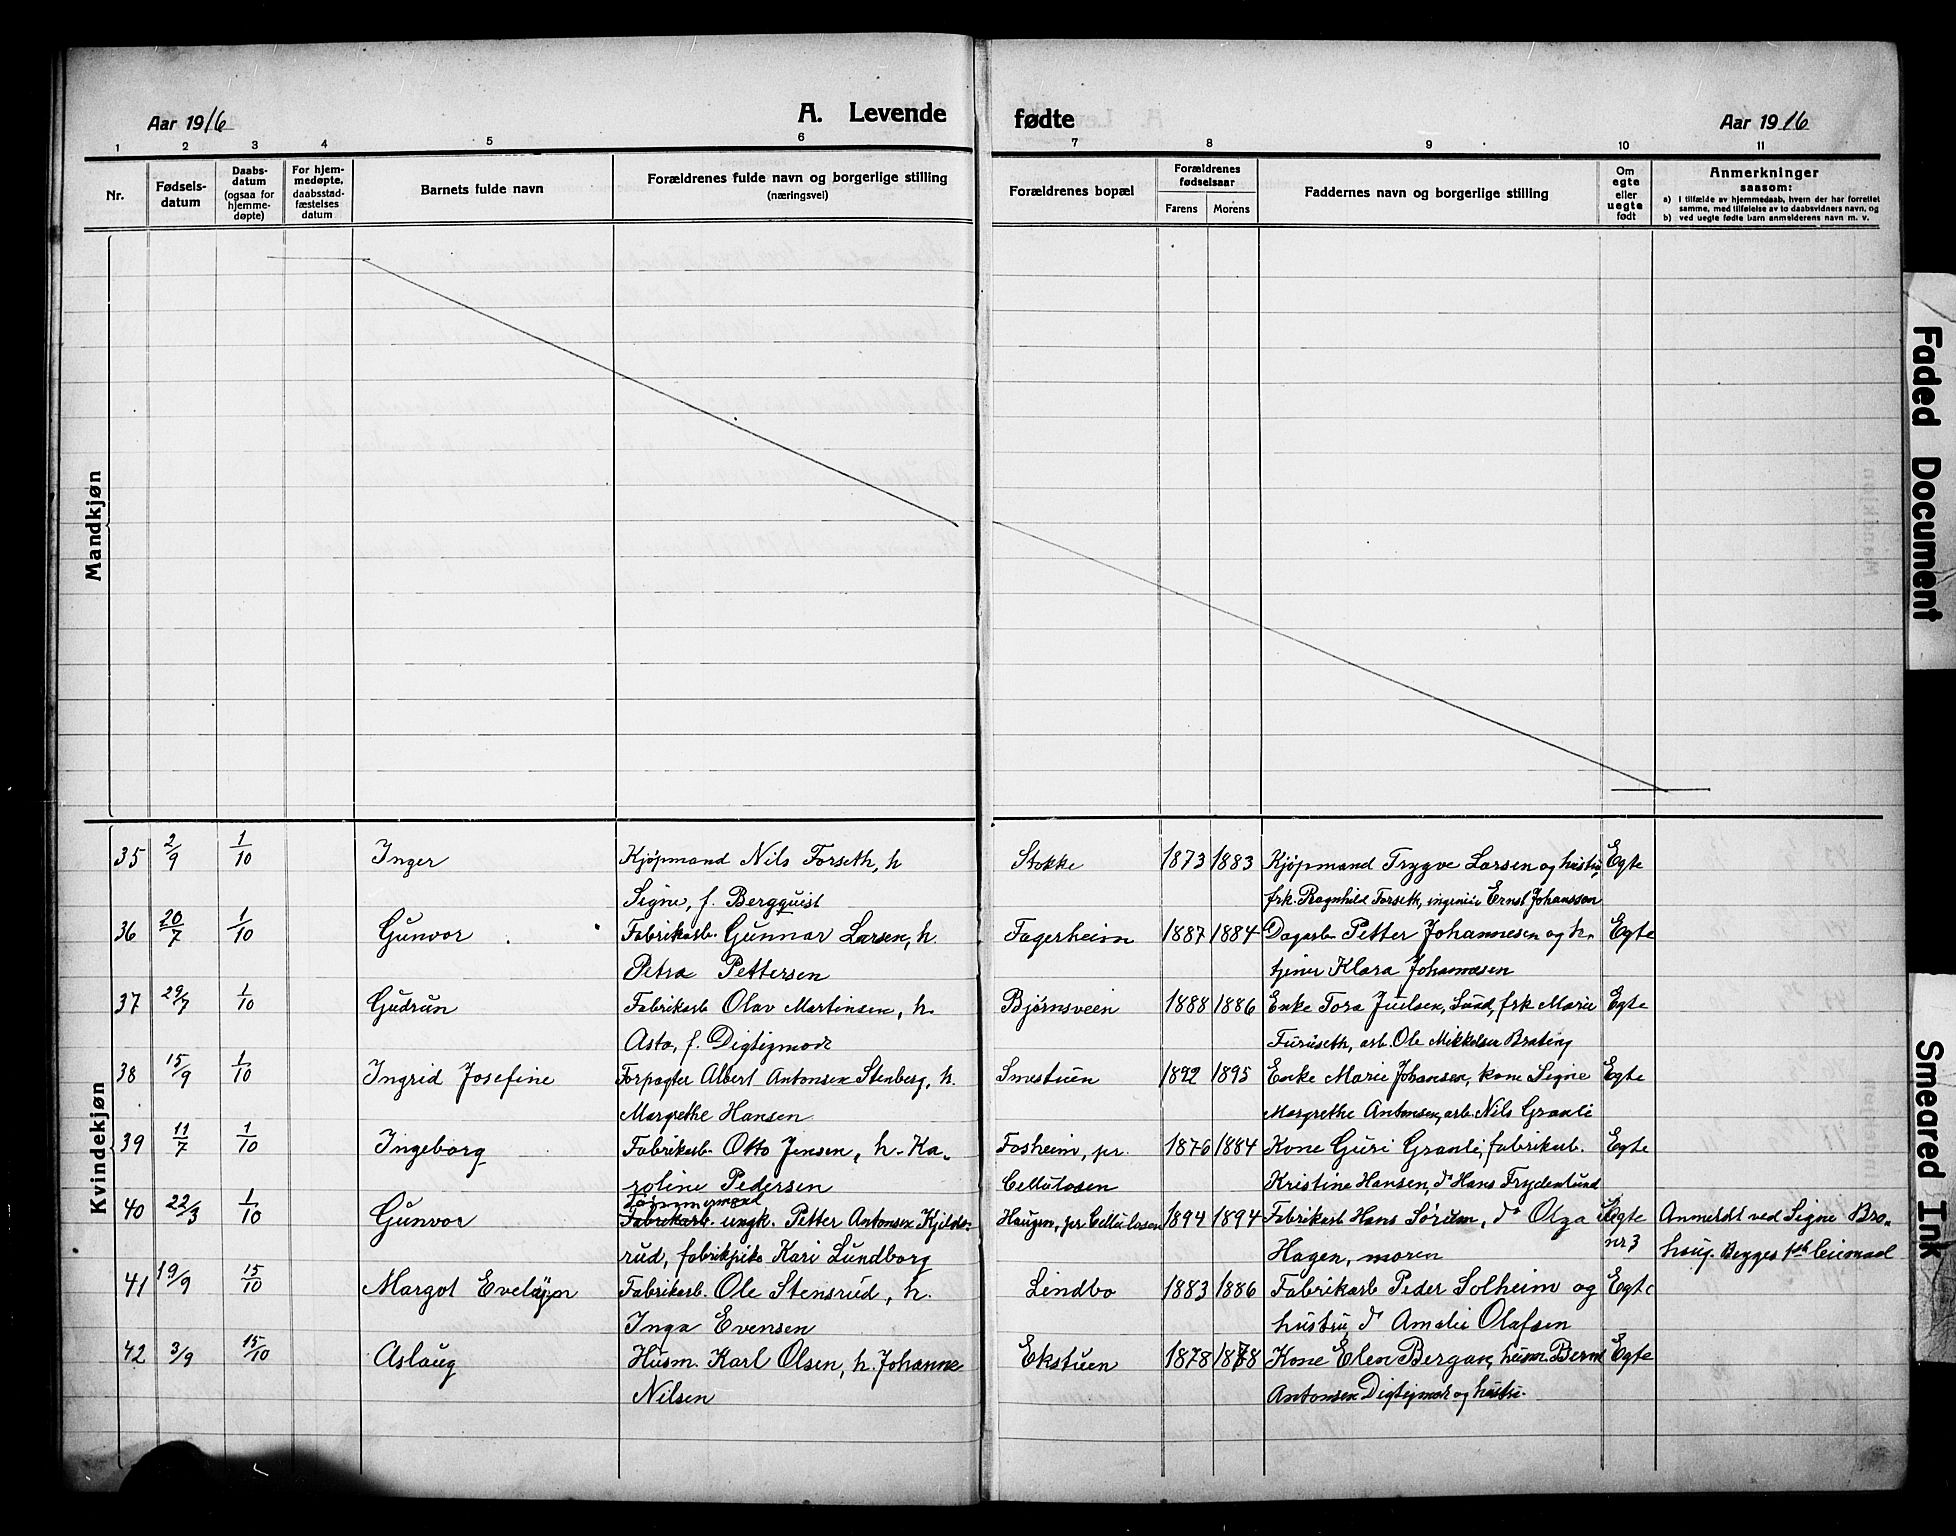 Aar 1916
A. Levende fødte
Aar 1916
1 2 3 4 5 6 7 8 9 10 11
Nr.
Fødsels-
datum
Daabs-
datum
(ogsaa for
hjemme-
døpte)
For hjem-
medøpte,
daabsstad-
fæstelses
datum
Barnets fulde navn
Forældrenes fulde navn og borgerlige stilling
(næringsvei)
Forældrenes bopæl
Forældrenes
fødselsaar
Farens Morens
Faddernes navn og borgerlige stilling
Om
egte
eller
uegte
født
Anmerkninger
saasom:
a) i tilfælde av hjemmedaab, hvem der har forrettet
samme, med tilføielse av to daabsvidners navn, og
b) ved uegte fødte barn anmelderens navn m. v.
Mandkjøn
Kvindekjøn
35 2/9 1/10 Inger Kjøpmand Nils Forseth, h Stokke 1873 1883 Kjøpmand Trygve Larsen og hustru, Egte
Signe, f. Bergquist frk. Ragnhild Forseth, ingeniør Ernst Johansson
36 20/7 1/10 Gunvor Fabrikarb. Gunnar Larsen, h. Fagerheim 1887 1884 Dagarb. Petter Johannesen og h. Egte
Petra Pettersen tjener Klara Johannesen
37 29/7 1/10 Gudrun Fabrikarb Olav Martinsen, h. Bjørnsveen 1888 1886 Enke Tora Juelsen, Sund, frk Marie Egte
Asta, f. Digtigmode Furuseth, arb. Ole Mikkelsen Brateng
38 15/9 1/10 Ingrid Josefine Forpagter Albert Antonsen Stenberg, h. Smestuen 1892 1895 Enke Marie Johansen, kone Signe Egte
Margrethe Hansen Margrethe Antonsen, arb. Nils Granli
39 11/7 1/10 Ingeborg Fabrikarb. Otto Jensen, h. Ka- Fosheim, pr. 1876 1884 Kone Guri Granli, fabrikarb. Egte
roline Pedersen Cellulosen Kristine Hansen, do Hans Frydenlund
Tømmermand
40 22/3 1/10 Gunvor Fabrikarb. ungk. Petter Antonsen Kjilds- Haugen, pr Cellulosen 1894 1894 Fabrikarb Hans Sørum, do Olga Uegte Anmeldt ved Signe Bro-
rud, fabrikpike Kari Lundborg Hagen, moren nr 3 haug. Begges 1ste leiemaal
41 19/9 15/10 Margot Evelyn Fabrikarb. Ole Stensrud, h. Lindbo 1883 1886 Fabrikarb Peder Solheim og Egte
Inga Evensen hustru, do Amalie Olafsen
42 3/9 15/10 Aslaug Husm. Karl Olsen, h. Johanne Ekstuen 1878 1878 Kone Elen Bergan, husm. Bernt Egte
Nilsen Antonsen Digtigmoe og hustru.
Faded Document
Smeared Ink